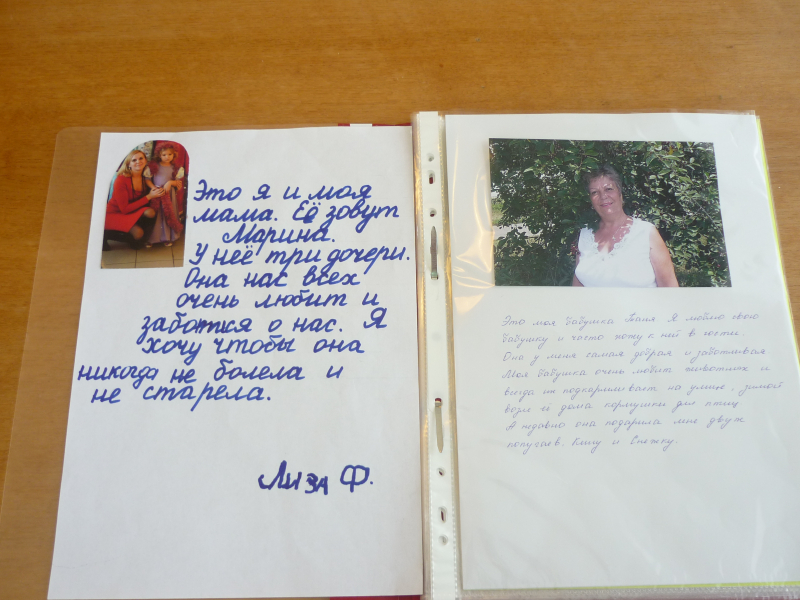 Это я и моя
мама. Её зовут
Марина.
У неё три дочери.
Она нас всех
очень любит и
заботится о нас. Я
хочу чтобы она
никогда не болела и
не старела.
Лиза Ф.
Это моя бабушка Валя Я люблю свою
бабушку и часто хожу к ней в гости.
Она у меня самая добрая и заботливая
Моя бабушка очень любит животных и
всегда их подкармливает на улице, зимой
возле её дома кормушки для птиц
А недавно она подарила мне двух
попугаев. Кешу и Снежку.